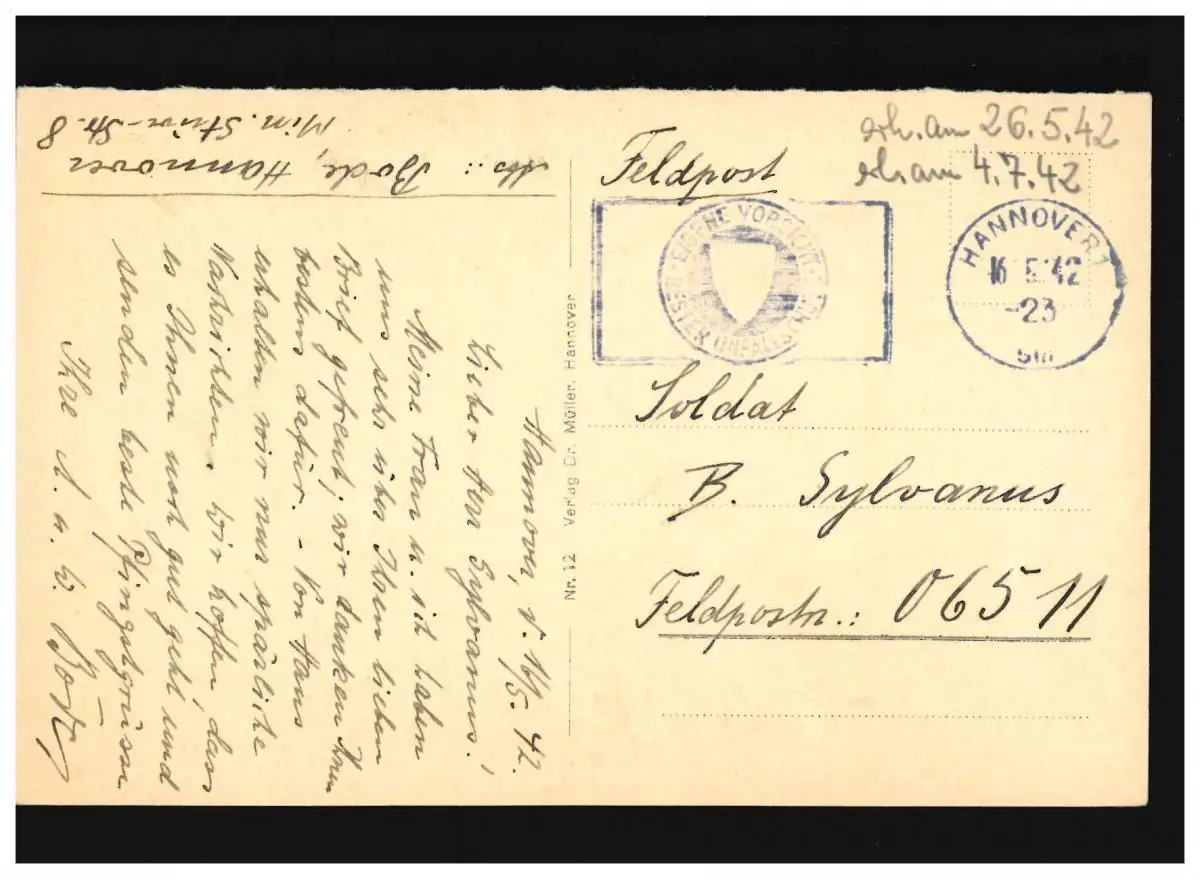 Abs.: Bode, Hannover
Min. Stüve-Str. 8
Hannover, d. 16/5. 42.
Lieber Herr Sylvanus!
Meine Frau u. ich haben
uns sehr über Ihren lieben
Brief gefreut; wir danken Ihnen
bestens dafür. – Von Hans
erhalten wir nur spärliche
Nachrichten. Wir hoffen, dass
es Ihnen noch gut geht und
senden beste Pfingstgrüsse
Ihre A. u. W. Bode
Nr. 12 Verlag Dr. Müller, Hannover
erh. am 26.5.42
erh. am 4.7.42
Feldpost
EIGENE VORSICHT
BESTER UNFALLSCHUTZ
HANNOVER 1
16.5.42
-23
Soldat
B. Sylvanus
Feldpostnr.: 06511